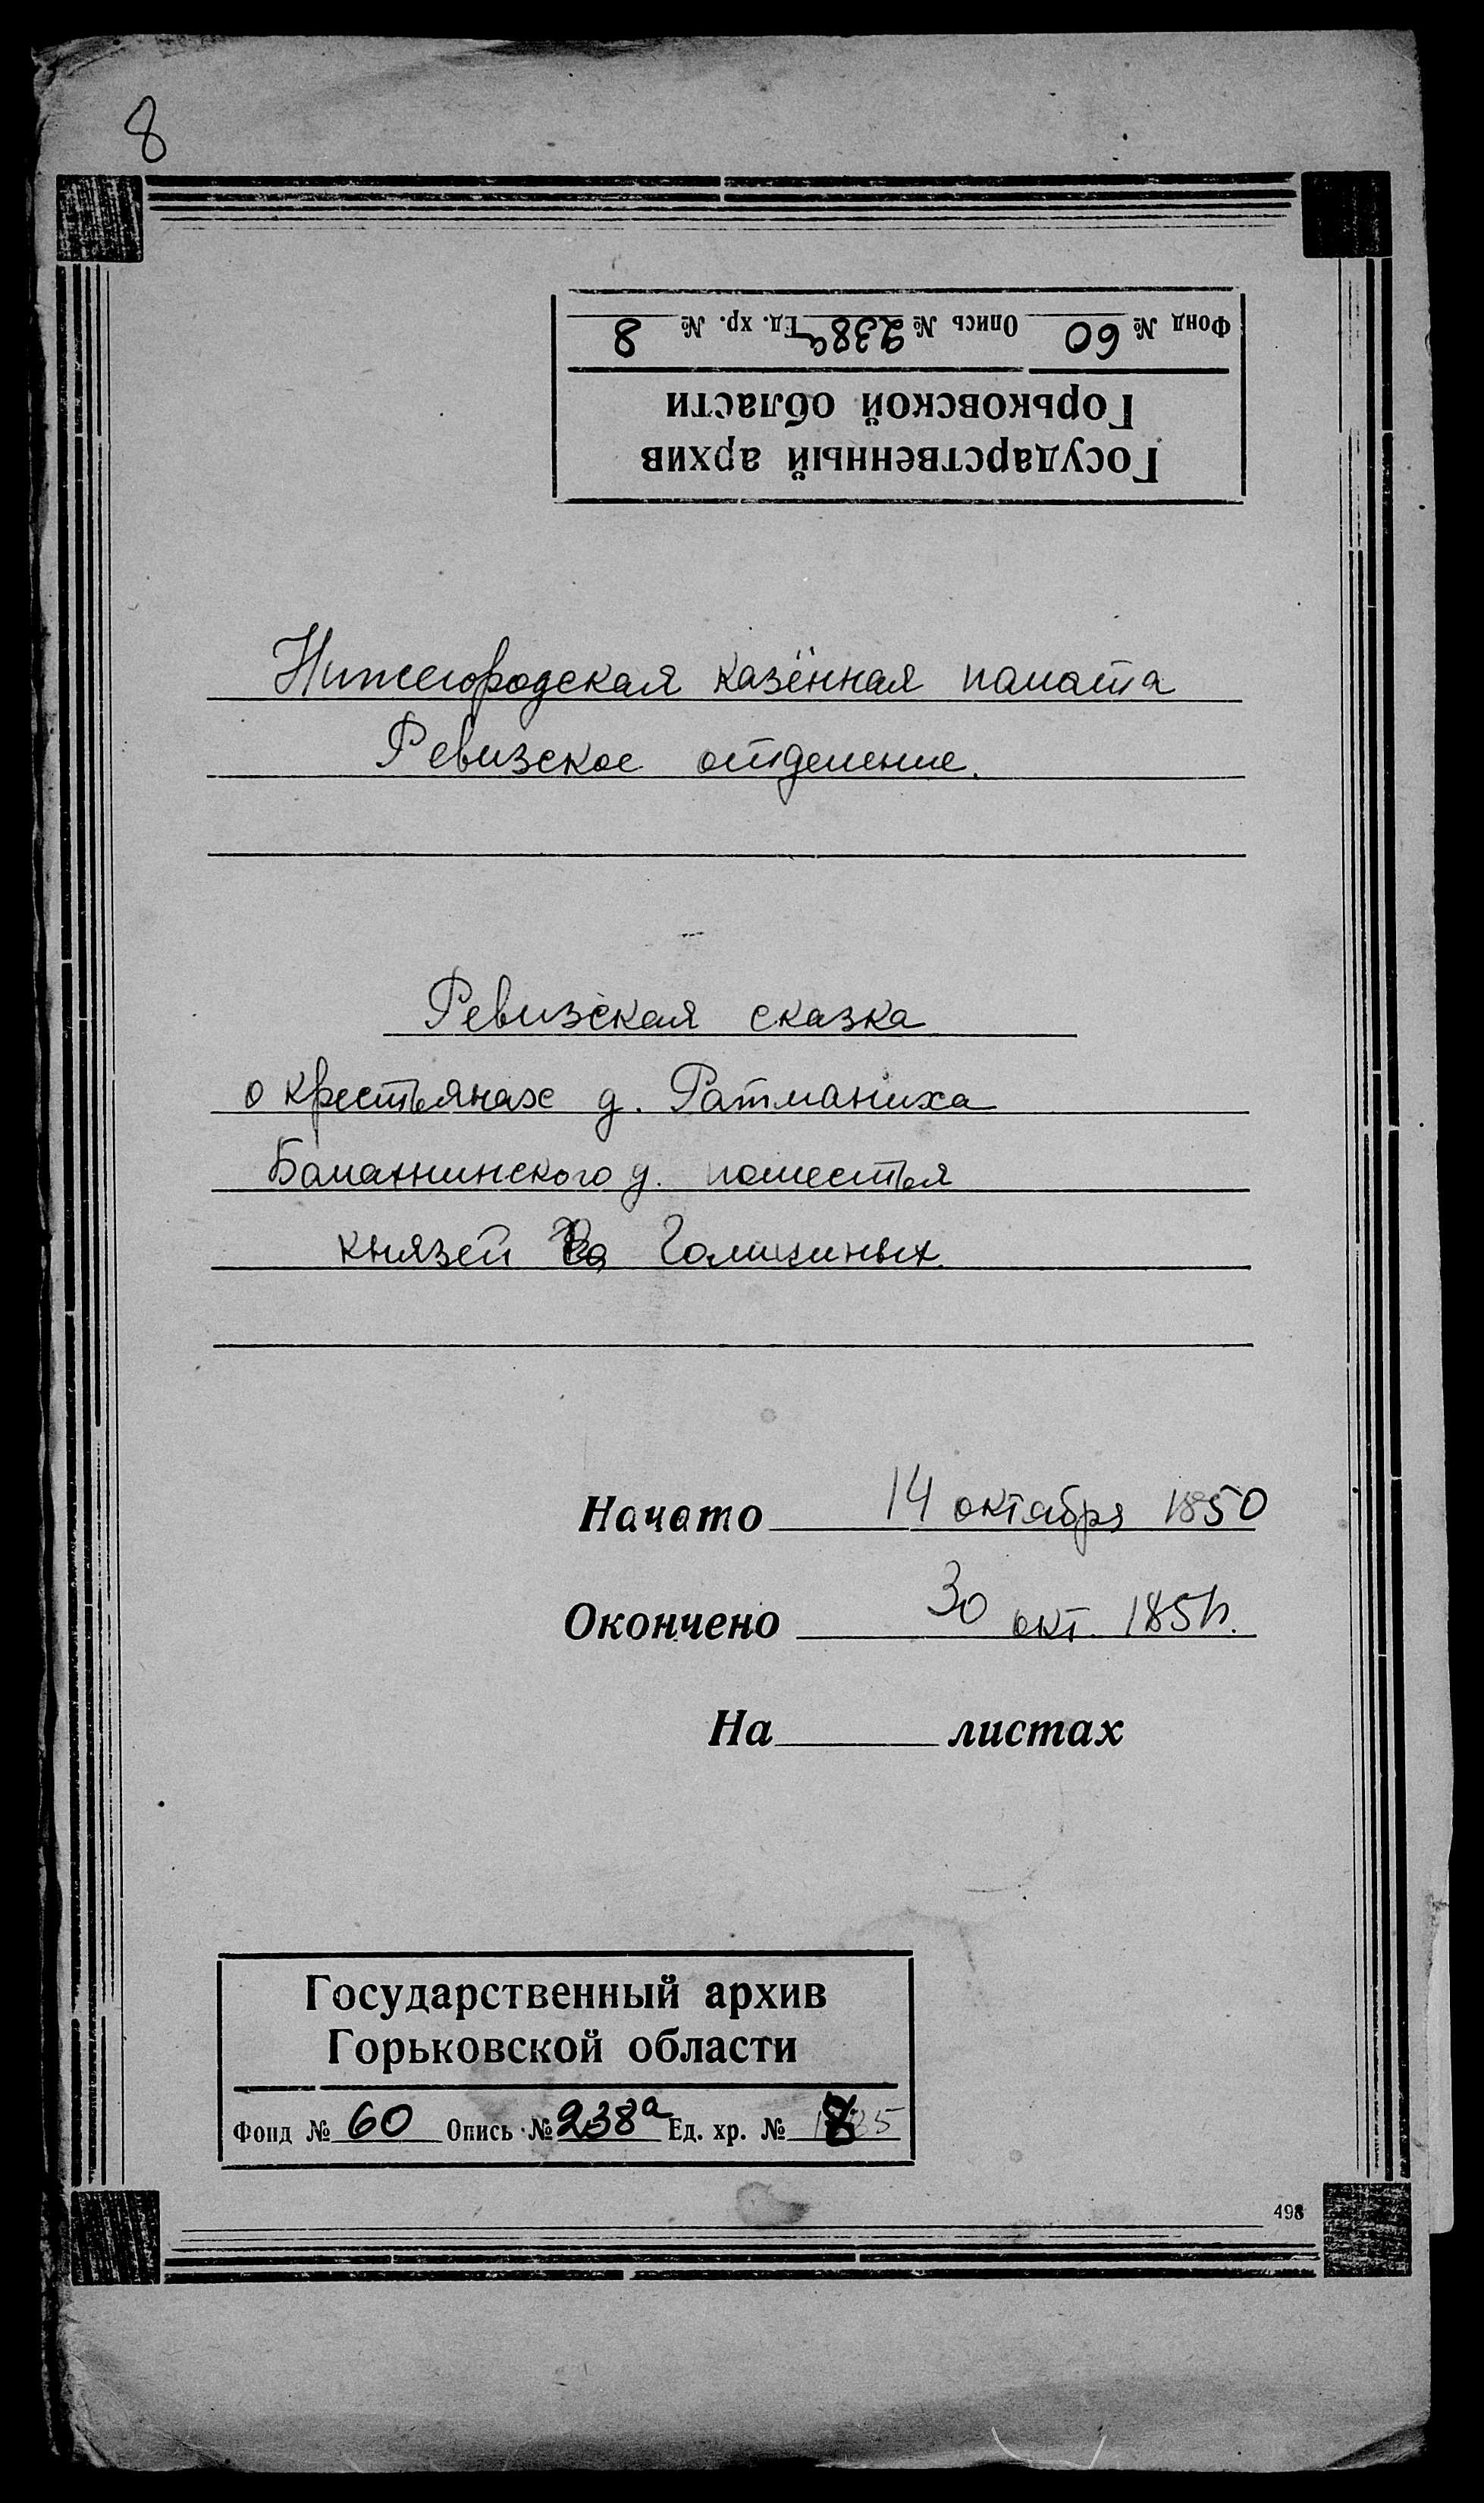 8
Фонд № 60 Опись № 238а Ед. хр. № 8
Горьковской области
Государственный архив
Нижегородская казённая палата
Ревизское отделение.
Ревизская сказка
о крестьянах д. Ратманиха
Балахнинского у. поместья
князей Голициных.
Начато 14 октября 1850
Окончено 30 окт. 185
На листах
Государственный архив
Горьковской области
Фонд № 60 Опись № 238а Ед. хр. № 8
498